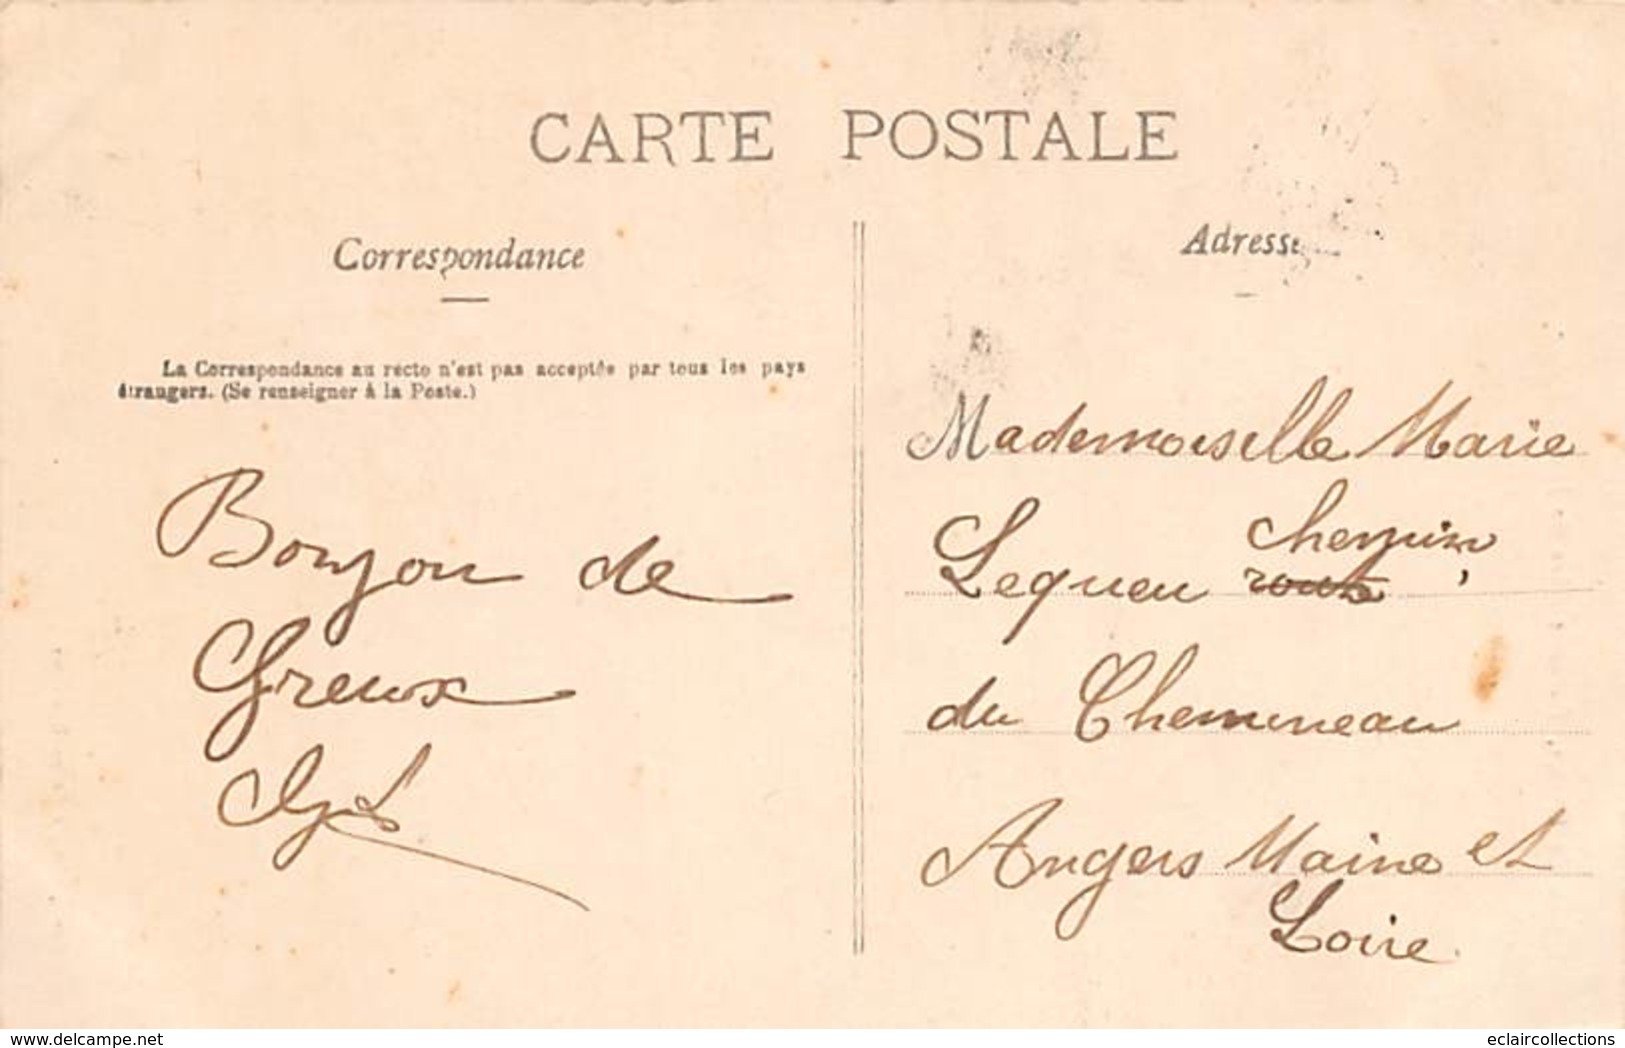 CARTE POSTALE
Correspondance
La Correspondance au recto n'est pas acceptée par tous les pays
étrangers. (Se renseigner à la Poste.)
Bonjou de
Greux
Adresse
Mademoiselle Marie
chemin
Lequeu route,
du Chemineau
Angers Maine et
Loire
www.delcampe.net
eclaircollections